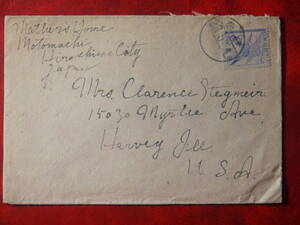 Mathers Home
Motomachi
Hiroshima City
Japan
Mrs Clarence Stegmeir
15030 Myrtle Ave
Harvey Ill
U. S. A.